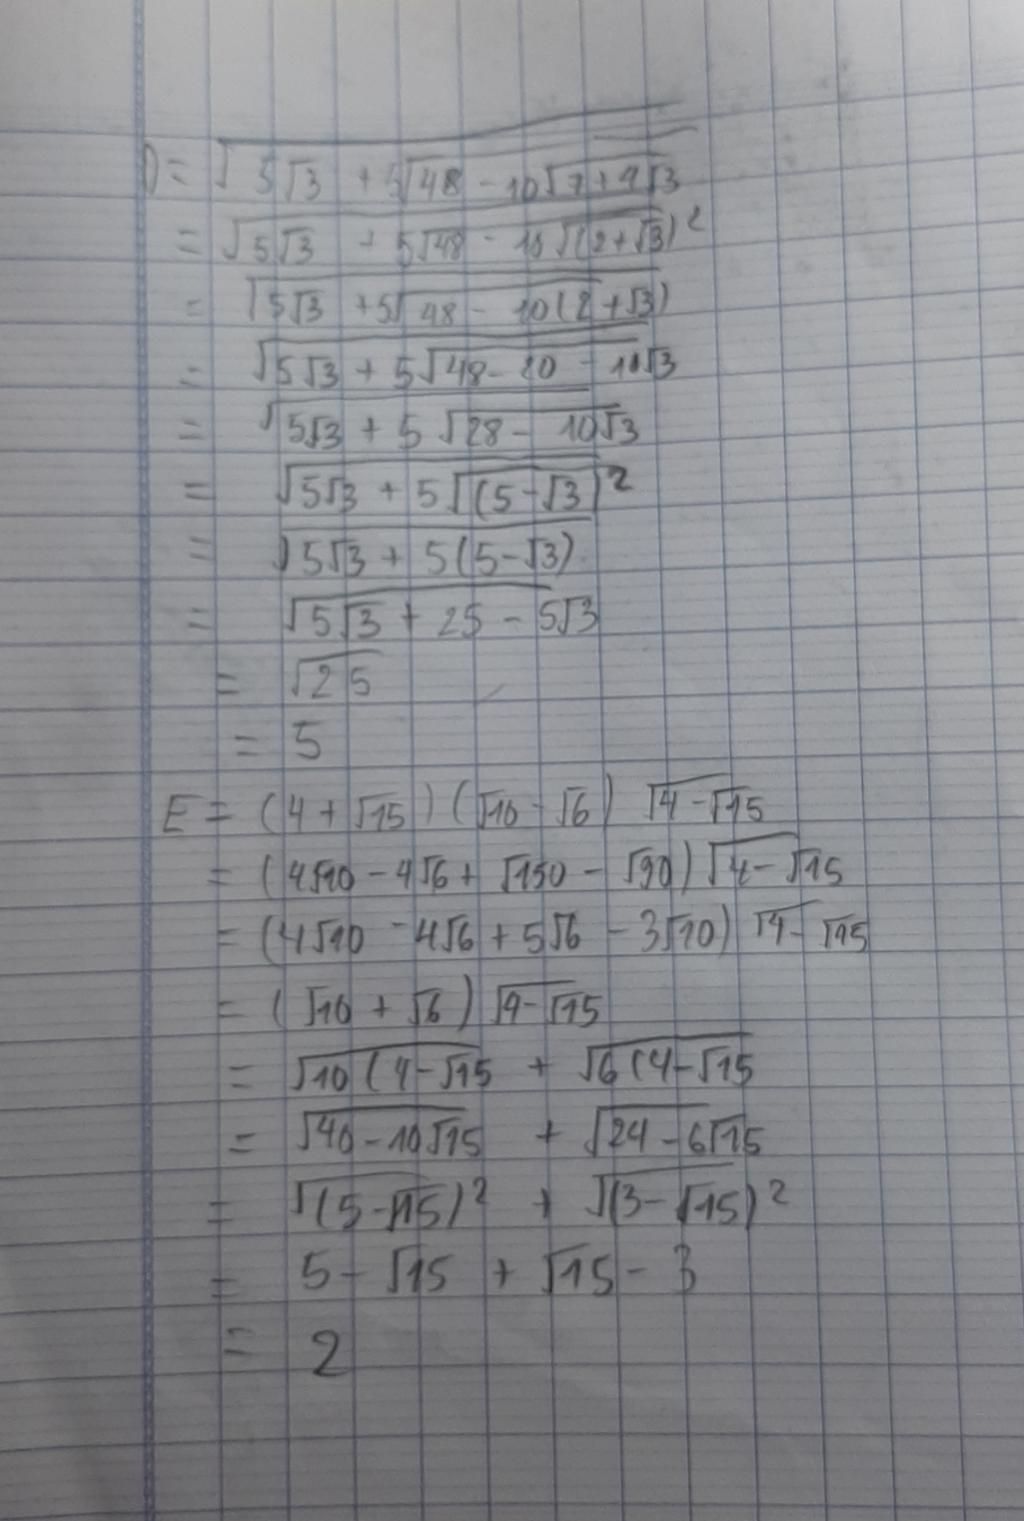 D = √5√3 + 5√48 - 10√7+4√3
= √5√3 + 5√48 - 10√(2+√3)²
= √5√3 + 5√48 - 10(2+√3)
= √5√3 + 5√48 - 20 - 10√3
= √5√3 + 5√28 - 10√3
= √5√3 + 5√(5-√3)²
= √5√3 + 5(5-√3)
= √5√3 + 25 - 5√3
= √25
= 5
E = (4+√15)(√10-√6) √4-√15
= (4√10 - 4√6 + √150 - √90) √4-√15
= (4√10 - 4√6 + 5√6 - 3√10) √4-√15
= (√10 + √6) √4-√15
= √10(4-√15 + √6(4-√15
= √40-10√15 + √24-6√15
= √(5-√15)² + √(3-√15)²
= 5 - √15 + √15 - 3
= 2